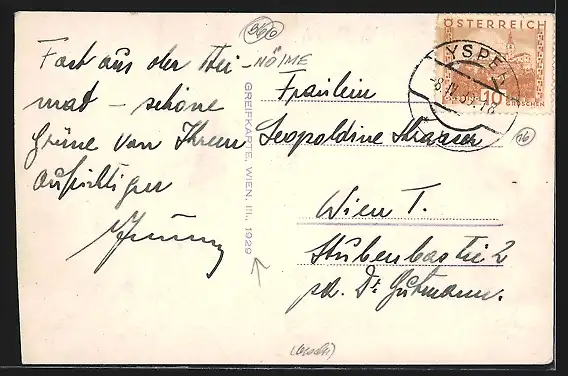 Fast aus der Hei-
mat – schöne
Grüne von Ihrem
aufrichtigen
NÖIME
GREIFKARTE, WIEN, III., 1929
ÖSTERREICH
10
GROSCHEN
YSPER
Fräulein
Leopoldine
Wien I.
Stubenbastei 2
pd. Dr. Gutmann.